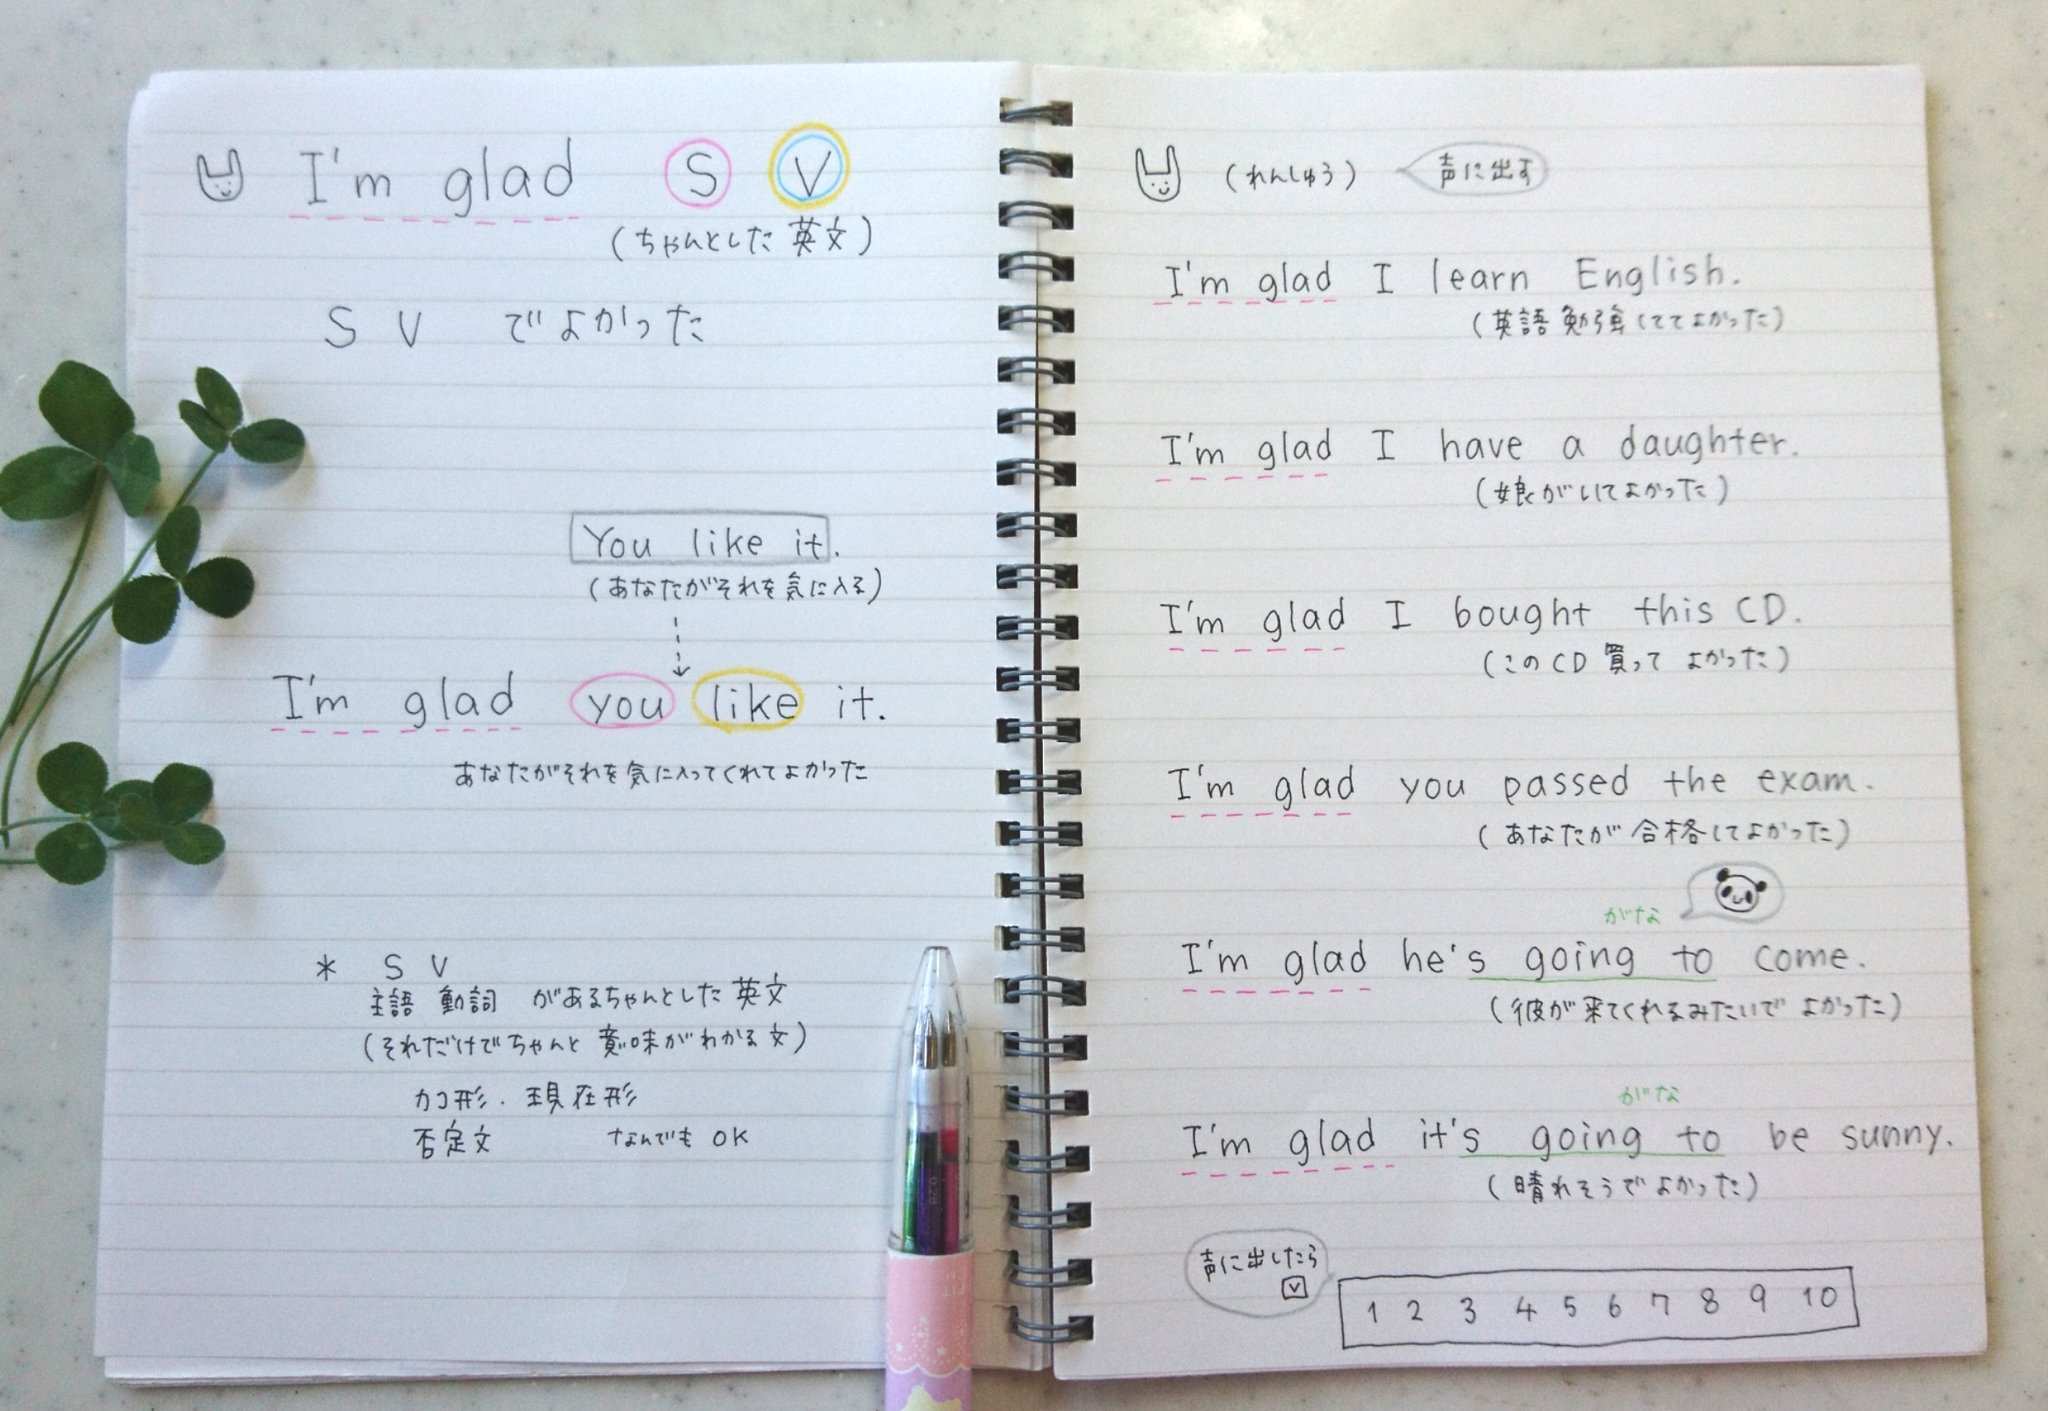 I'm glad S V
(ちゃんとした 英文)
S V でよかった
You like it.
(あなたがそれを気に入る)
I'm glad you like it.
あなたがそれを気に入ってくれてよかった
* S V
主語 動詞 があるちゃんとした英文
(それだけでちゃんと意味がわかる文)
カコ形. 現在形
否定文 なんでも OK
(れんしゅう) 声に出す
I'm glad I learn English.
(英語勉強しててよかった)
I'm glad I have a daughter.
(娘がいてよかった)
I'm glad I bought this CD.
(このCD 買って よかった)
I'm glad you passed the exam.
(あなたが合格してよかった)
がな
I'm glad he's going to come.
(彼が来てくれるみたいで よかった)
がな
I'm glad it's going to be sunny.
(晴れそうでよかった)
声に出したら
V
1 2 3 4 5 6 7 8 9 10
0.28